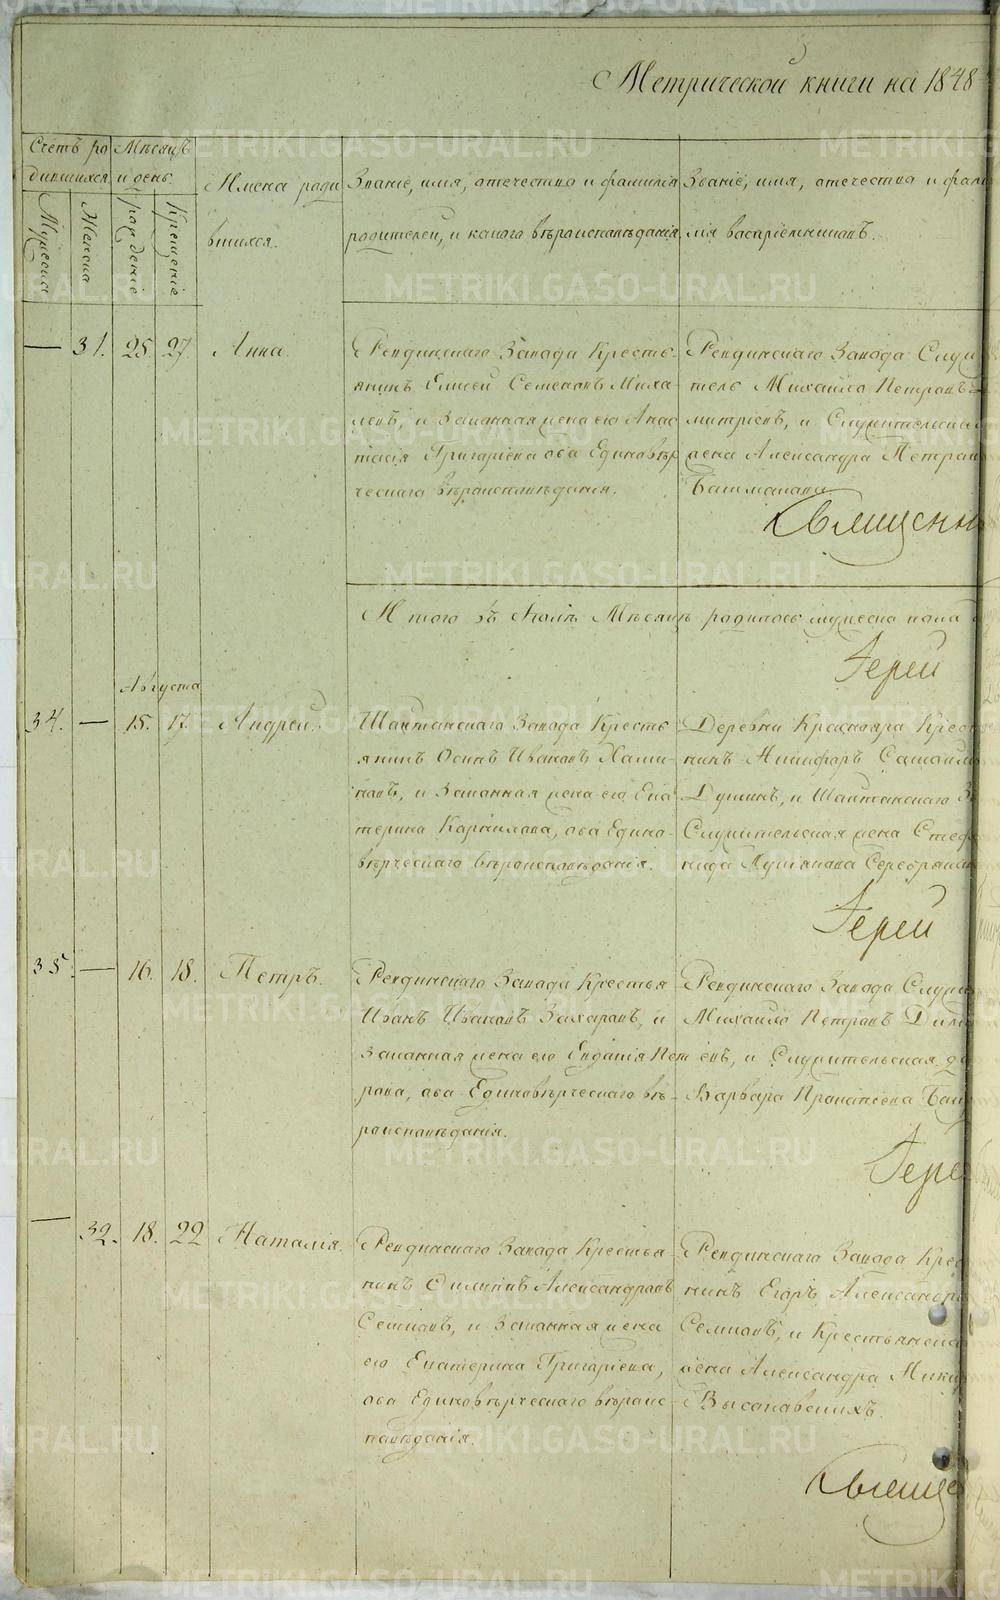 Метрической книги на 1848
Счетъ ро
дившихся
Мѣсяцъ
и день.
Мужеска
Женска
рожденіе
Крещеніе
Имена роди
вшихся.
Званіе, имя, отечество и фамилія
родителей, и какого вѣроисповѣданія
Званіе, имя, отечество и фами
лія воспріемниковъ.
— 31. 25. 27. Анна.
Ревдинскаго Завода Кресть-
янинъ Елисей Семеновъ Миха-
левъ, и Законная жена его Анас
тасія Григоріева оба Единовѣр
ческаго вѣроисповѣданія.
Ревдинскаго Завода Служи
тель Михайло Петровъ
митріевъ, и Служительская
жена Александра Петров
Башмакова
Священн
Итого въ Іюлѣ Мѣсяцѣ родилось мужеска пола
Іерей
Августа
34. — 15. 17. Андрей.
Шайтанскаго Завода Кресть
янинъ Осипъ Ивановъ Хами-
новъ, и Законная жена его Ека
терина Карпилова, оба Едино-
вѣрческаго вѣроисповѣданія.
Деревни Краснояра Крест
нинъ Никифоръ Самойл
Душинъ, и Шайтанскаго З
Служительская жена Стеф
нида Лукіянова Серебрянни
Іерей
35. — 16. 18. Петръ.
Ревдинскаго Завода Крестья
Иванъ Ивановъ Захаровъ, и
Законная жена его Евдокія Пет
рова, оба Единовѣрческаго вѣ-
роисповѣданія.
Ревдинскаго Завода Служи
Михайло Петровъ Дими
евъ, и Служительская д
Варвара Прокопіева Баш
Іере
— 32. 18. 22 Наталія.
Ревдинскаго Завода Крестья
нинъ Филипъ Александровъ
Семковъ, и Законная жена
его Екатерина Григоріева,
оба Единовѣрческаго вѣроис-
повѣданія.
Ревдинскаго Завода Крес
нинъ Егоръ Александр
Семковъ, и Крестьянска
жена Александра Мики
Высоковскихъ.
Свяще
METRIKI.GASO-URAL.RU